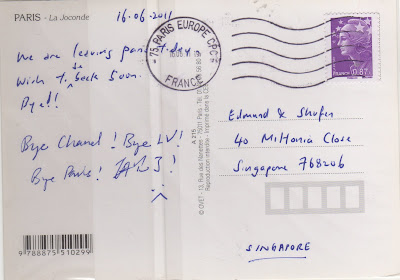 PARIS - La Joconde
16.06.2011
We are leaving paris today
Wish to be back soon.
Bye!!
Bye Chanel! Bye LV!
Bye Paris!
75 PARIS EUROPE CPCT
FRANCE
FRANCE 0,87
Edmund & Shofen
40 Miltonia Close
Singapore 768206
SINGAPORE
A 215
Reproduction interdite - Imprimé dans la CE
9 788875 510299